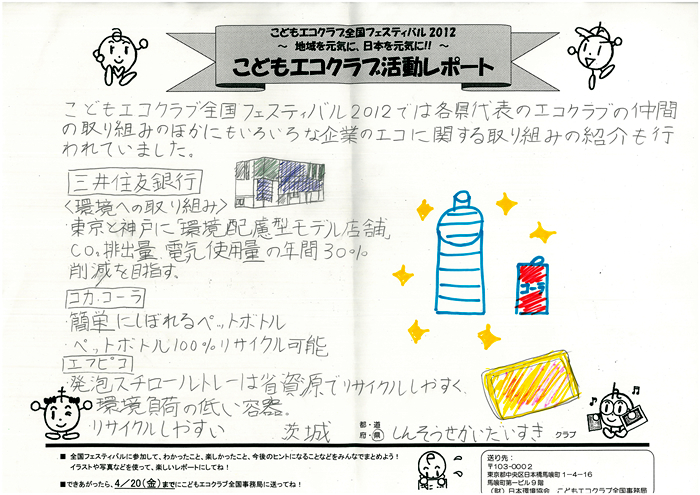 こどもエコクラブ全国フェスティバル 2012
～ 地域を元気に、日本を元気に!! ～
こどもエコクラブ活動レポート
こどもエコクラブ全国フェスティバル2012では各県代表のエコクラブの仲間
の取り組みのほかにもいろいろな企業のエコに関する取り組みの紹介も行
われていました。
三井住友銀行
<環境への取り組み>
・東京と神戸に「環境配慮型モデル店舗
CO₂排出量、電気使用量の年間30%
削減を目指す。
コカ・コーラ
・簡単にしぼれるペットボトル
・ペットボトル100%リサイクル可能
コーラ
エフピコ
・発泡スチロールトレーは省資源でリサイクルしやすく、
環境負荷の低い容器。
リサイクルしやすい
茨城 都・道・府・県 しんそうせかいだいすき クラブ
■ 全国フェスティバルに参加して、わかったこと、楽しかったこと、今後のヒントになることなどをみんなでまとめよう！
イラストや写真などを使って、楽しいレポートにしてね！
■できあがったら、4/20(金)までにこどもエコクラブ全国事務局に送ってね！
送り先：
〒103-0002
東京都中央区日本橋馬喰町1-4-16
馬喰町第一ビル9階
(財)日本環境協会 こどもエコクラブ全国事務局